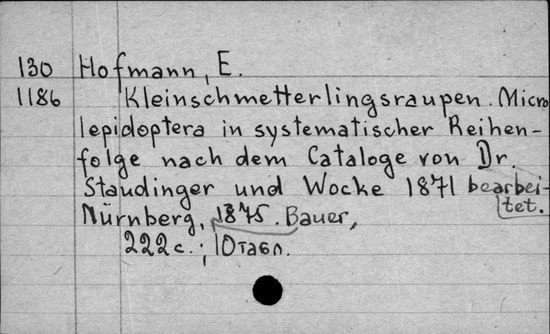 130 Hofmann, E.
1186 Kleinschmetterlingsraupen. Micro
lepidoptera in systematischer Reihen-
folge nach dem Cataloge von Dr.
Staudinger und Wocke 1871 bearbei-
tet.
Nürnberg, 1875. Bauer,
222 с.; 10 табл.